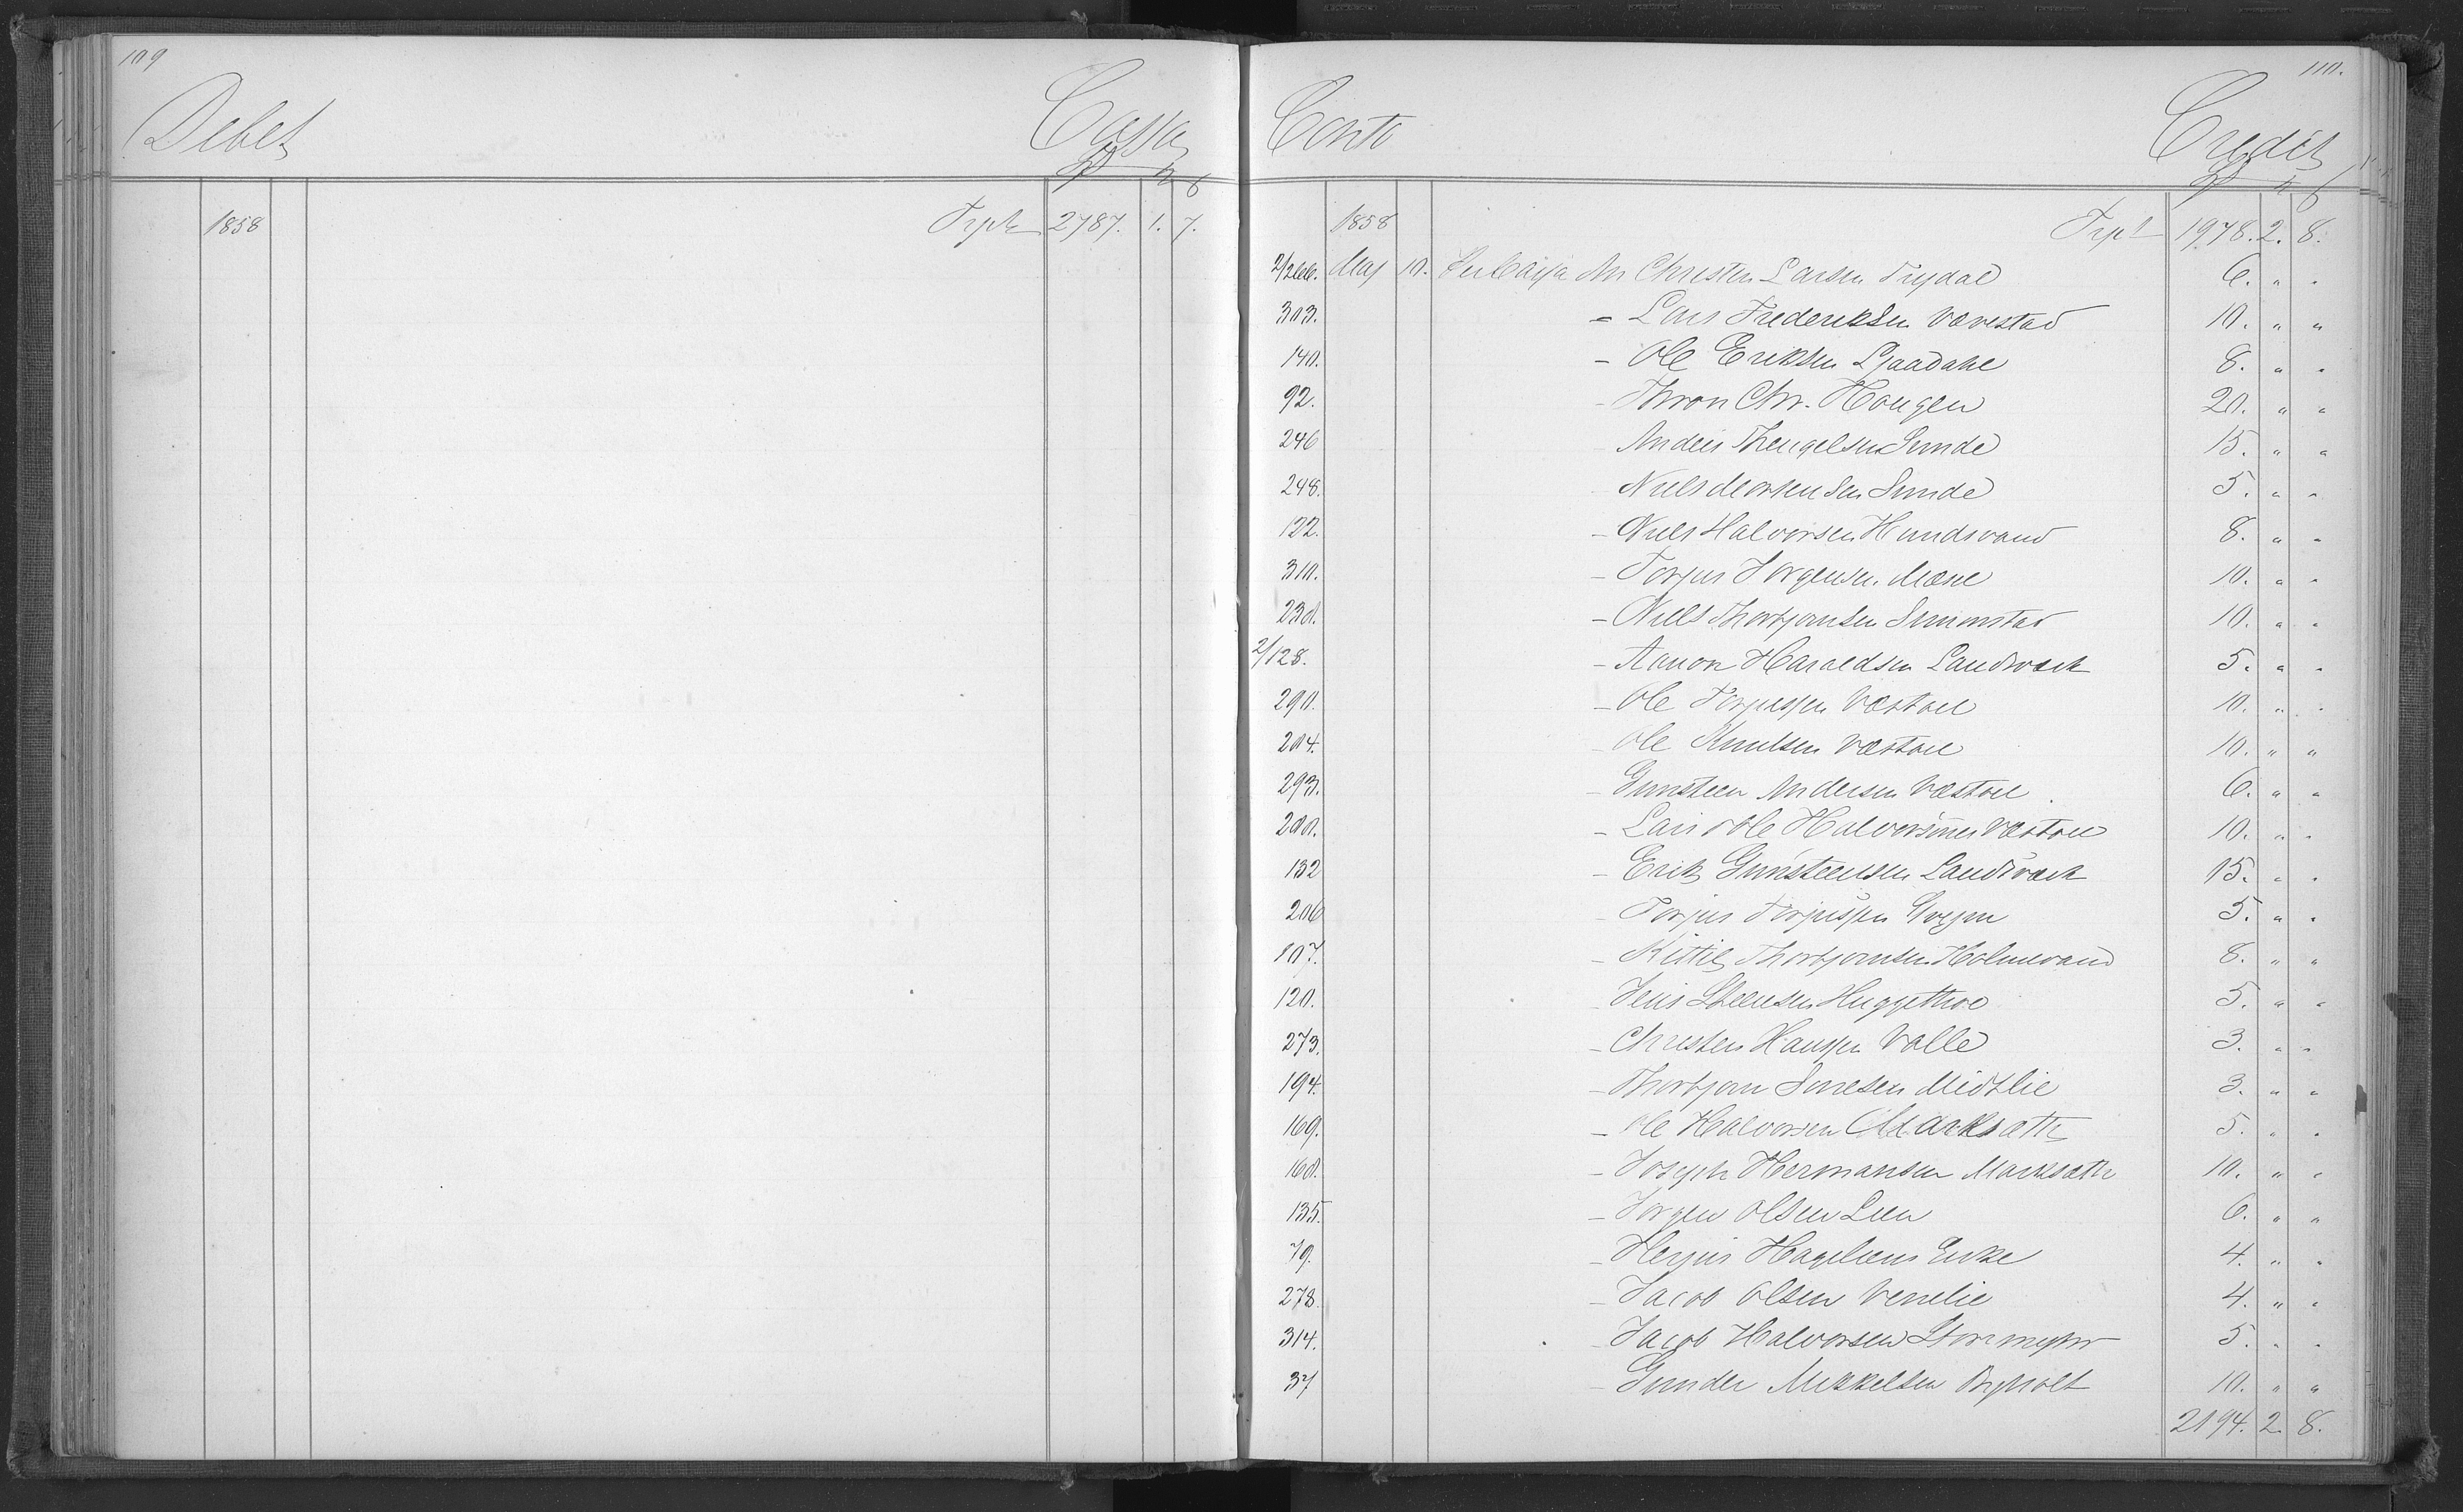 109
Debet Cassa
1858 Trpt 2787. 1. 7.
110.
Conto Credit
1858 Trpt 1978. 2. 8.
2/266. Maj 10. Per Cassa An Christen Larsen Trydal 6. " "
303. - Lars Frederiksen Vævestad 10. " "
140. - Ole Eriksen 8. " "
92. - Thron Chr. Hougen 20. " "
246 - Anders Thengelsen Sunde 15. " "
248. - Niels Mortensen Sunde 5. " "
122. - Niels Halvorsen Hundsvand 8. " "
310. - Torjus Jørgensen Mæsel 10. " "
230. - Niels Thorbjørnsen Simonstad 10. " "
2/128. - Aanon Haraldsen Landsværk 5. " "
290. - Ole Torjussen Væstøel 10. " "
204. - Ole Knutsen Væstøel 10. " "
293. - Gunsteen Andersen Væstøel 6. " "
200. - Lars & Ole Halvorsønner Væstøel 10. " "
132 - Erik Gunsteensen Landsværk 15. " "
206 - Torjus Torjussen 5. " "
107. - Kittil Thorbjørnsen Holmevand 8. " "
120. - Jens Steensen Huggethvet 5. " "
273. - Christen Hanssen Valle 3. " "
194. - Thorbjørn Sørresen Midtlie 3. " "
169. - Ole Halvorsen Marksæth 5. " "
168. - Joseph Hermansen Marksæth 10. " "
135. - Jørgen Olsen Leen 6. " "
79. - Herjus Hageliens Enke 4. " "
278. - Jacob Olsen Venelie 4. " "
314. - Jacob Halvorsen Storemyhr 5. " "
37 - Gunder Mikkelsen Bryholt 10. " "
2194. 2. 8.